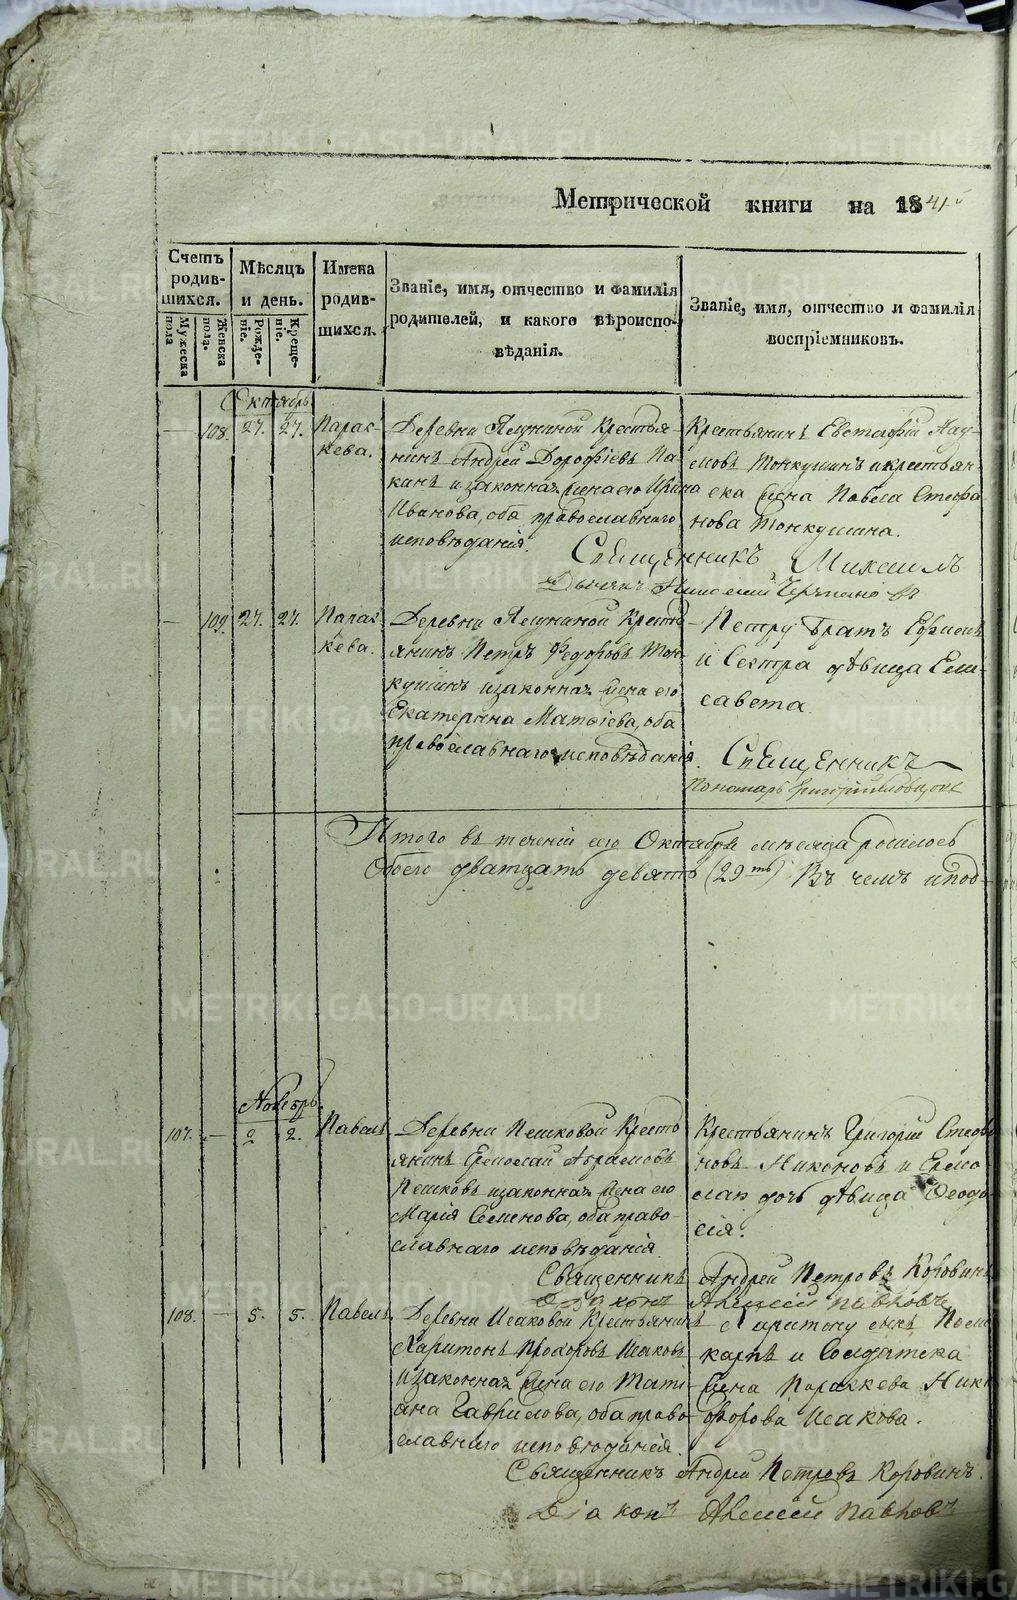 METRIKI.GASO-URAL.RU
Метрической книги на 1841й
Счетъ родив-шихся.
Мужеска пола
Женска пола.
Мѣсяцъ и день.
Рожде-нiе.
Креще-нiе.
Имена родив-шихся.
Званiе, имя, отчество и фамилiя
родителей, и какого вѣроиспо-
вѣданiя.
Званiе, имя, отчество и фамилiя
воспрiемниковъ.
Октябрь
108. 27. 27. Парас-
кева.
Деревни Ялуниной Крестья-
нинъ Андрей Дорофѣевъ Па-
кинъ и законная жена его Ирина
Иванова, оба православнаго
исповѣданiя.
Крестьянинъ Евстафiй Нау-
мовъ Тонкушинъ и крестьян-
ска жена Павела Стефа
нова Тонкушина.
Священникъ Михаилъ
Дьячекъ
109. 27. 27. Парас-
кева.
Деревни Ялуниной Кресть-
янинъ Петръ Федоровъ Тон-
кушинъ и законная жена его
Екатерина Матѳiева, оба
православнаго исповѣданiя.
Петру братъ Ефимъ
и Сестра дѣвица Ели-
савета.
Священникъ
Пономарь Григорiй
Итого въ теченiи сего Октября мѣсяца родилось
Обоего дватцать девять (29ть) Въ чемъ и под-
Ноябрь.
107. — 2 2. Павелъ
Деревни Пешковой Кресть
янинъ Ермолай Абрамовъ
Пешковъ и законная жена его
Марiя Семенова, оба право-
славнаго исповѣданiя.
Крестьянинъ Григорiй Стефа
новъ Никоновъ и Ермо
лая дочь дѣвица Ѳеодо
сiя.
Священникъ Андрей Петровъ Коровинъ
Дiаконъ Алексiй Павловъ
108. — 5. 5. Павелъ.
Деревни Исаковой Крестьянинъ
Харитонъ Прохоровъ Исаковъ
и законная жена его Татi-
ана Гаврилова, оба право-
славнаго исповѣданiя.
Харитону сынъ Поли
карпъ и Солдатска
жена Параскева Ники
форова Исакова.
Священникъ Андрей Петровъ Коровинъ.
Дiаконъ Алексiй Павловъ